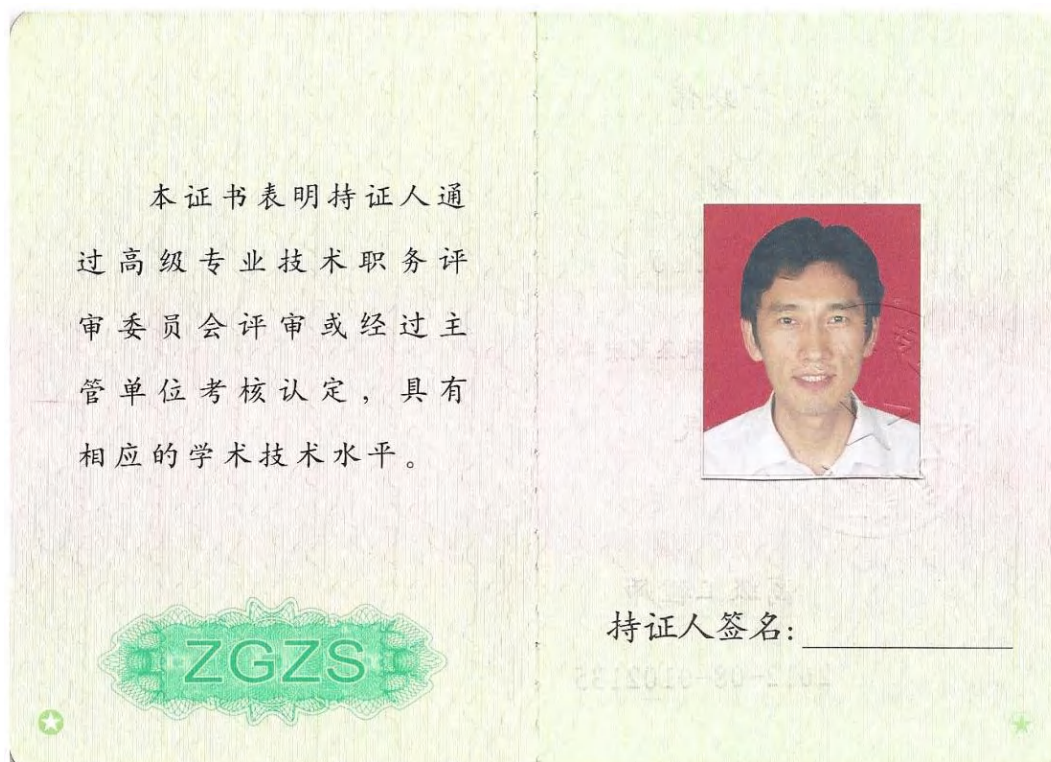 本证书表明持证人通
过高级专业技术职务评
审委员会评审或经过主
管单位考核认定，具有
相应的学术技术水平。
ZGZS
持证人签名：
高级工程师